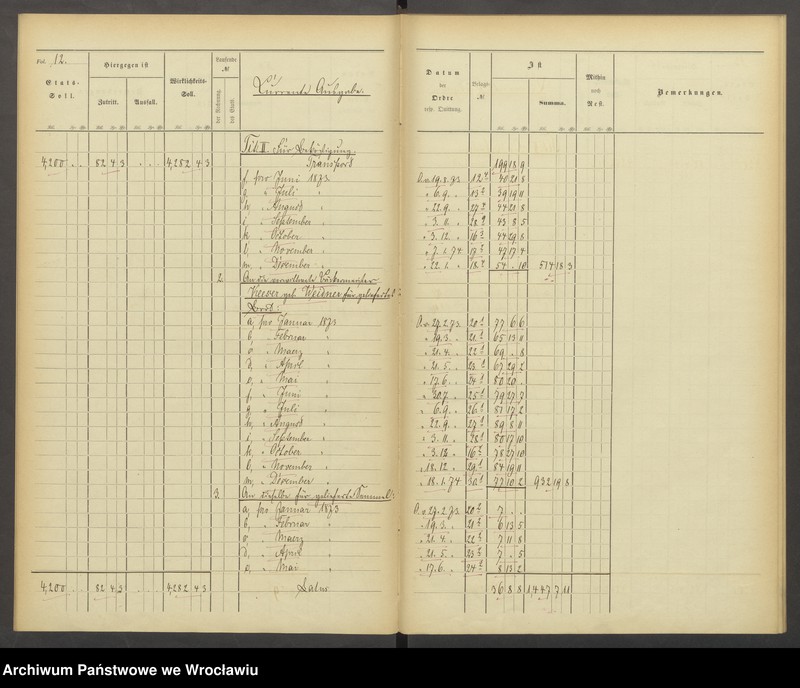 Fol. 12.
Etats-Soll.
Hiergegen ist
Zutritt.
Ausfall.
Wirklichkeits-Soll.
Laufende №
der Rechnung.
des Etats.
Currente Ausgabe.
Datum der Ordre resp. Quittung.
Belags- №
Ist
Summa.
Mithin noch Rest.
Bemerkungen.
Tit. II. Für Beköstigung.
4,200 . . 82 4 3 . . . 4,282 4 3 Transport 199 13 9
f, pro Juni 1873 Q. v. 19.8.73 12 40 21 8
g, " Juli " " 6.9. " 13 39 19 11
h, " August " " 22.9. " 27 44 21 8
i, " September " " 3.11. " 28 43 8 5
k, " October " " 3.12. " 16 44 29 8
l, " November " " 7.1.74 17 47 17 4
m, " December " " 22.1. " 18 54 . 10 514 13 3
2. An die verwittwete Bäckermeister
geb. Weidner für geliefertes
Brod:
a, pro Januar 1873 Q. v. 27.2.73 20 77 6 6
b, " Februar " " 19.3. " 21 65 13 11
c, " Maerz " " 21.4. " 22 69 . 8
d, " April " " 21.5. " 23 67 29 2
e, " Mai " " 17.6. " 24 80 20 .
f, " Juni " " 30.7. " 25 79 27 7
g, " Juli " " 6.9. " 26 81 17 2
h, " August " " 22.9. " 27 89 8 11
i, " September " " 3.11. " 28 80 17 10
k, " October " " 3.12. " 16 78 27 10
l, " November " " 18.12. " 29 84 19 11
m, " December " " 18.1.74 30 77 10 2 932 19 8
3. An dieselbe für gelieferte Semmel:
a, pro Januar 1873 Q. v. 27.2.73 20 7 . .
b, " Februar " " 19.3. " 21 6 13 5
c, " Maerz " " 21.4. " 22 7 11 8
d, " April " " 21.5. " 23 7 . 5
e, " Mai " " 17.6. " 24 8 13 2
4,200 . . 82 4 3 . . . 4,282 4 3 Latus 36 8 8 1,447 7 11
Archiwum Państwowe we Wrocławiu